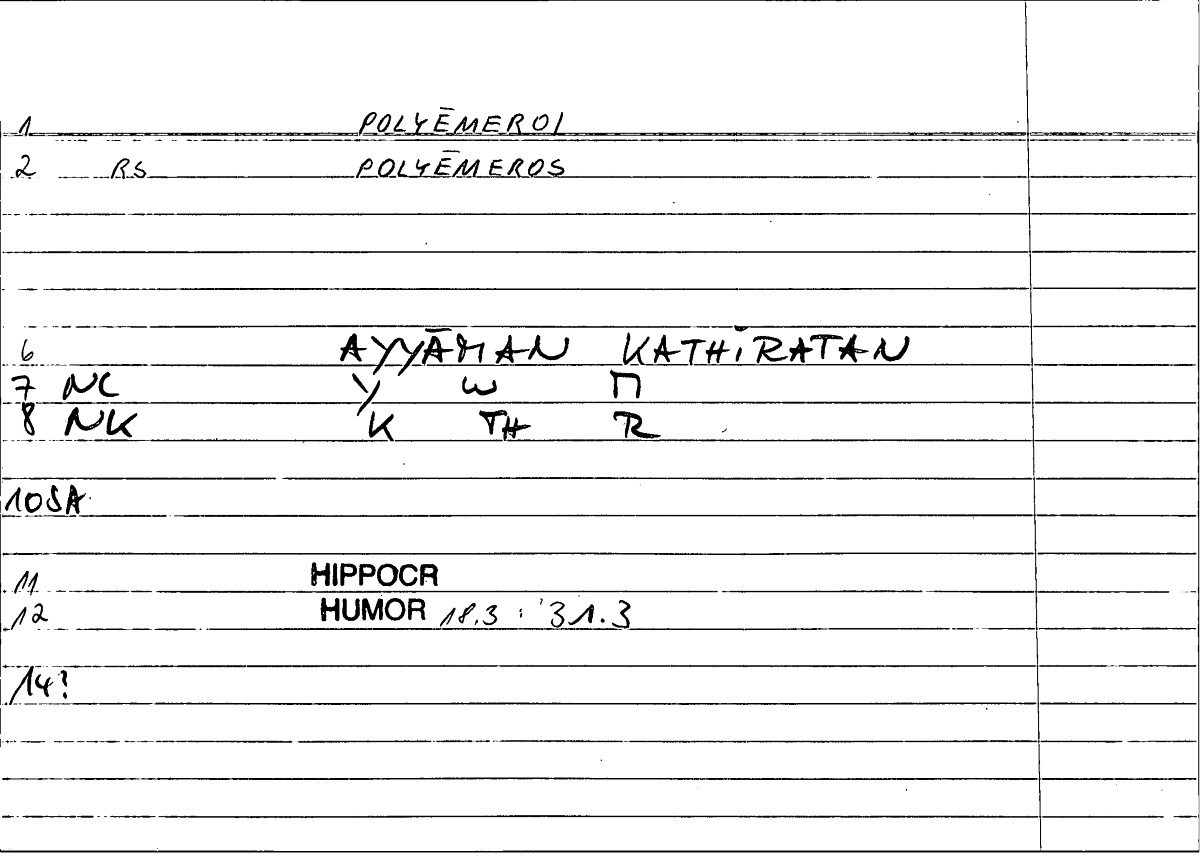 1 POLYĒMEROI
2 RS POLYĒMEROS
6 AYYĀMAN KATHIRATAN
7 NC Y W M
8 NK K TH R
10 SA
11 HIPPOCR
12 HUMOR 18.3 : 31.3
14?